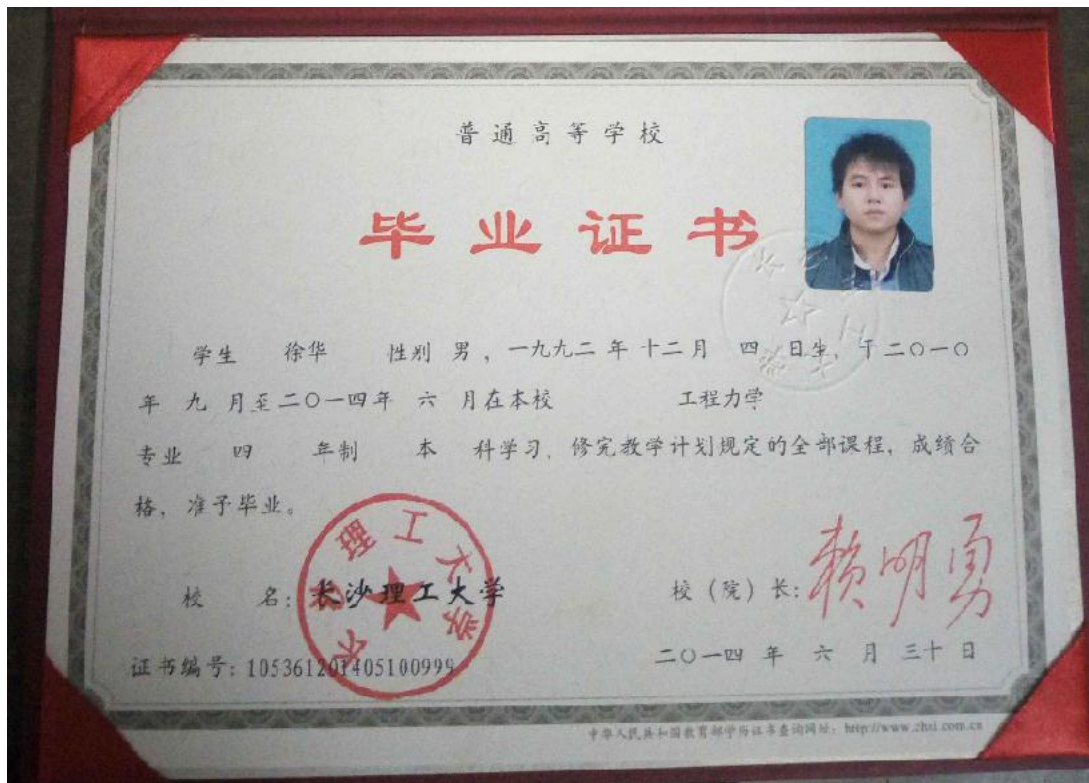 普通高等学校
毕业证书
学生 徐华 性别 男，一九九二年十二月 四 日生，于二〇一〇
年 九 月至二〇一四年 六 月在本校 工程力学
专业 四 年制 本 科学习，修完教学计划规定的全部课程，成绩合
格，准予毕业。
长沙理工大学
校 名：长沙理工大学
校（院）长：赖明勇
证书编号：105361201405100999
二〇一四 年 六 月 三十 日
中华人民共和国教育部学历证书查询网址：http://www.chsi.com.cn